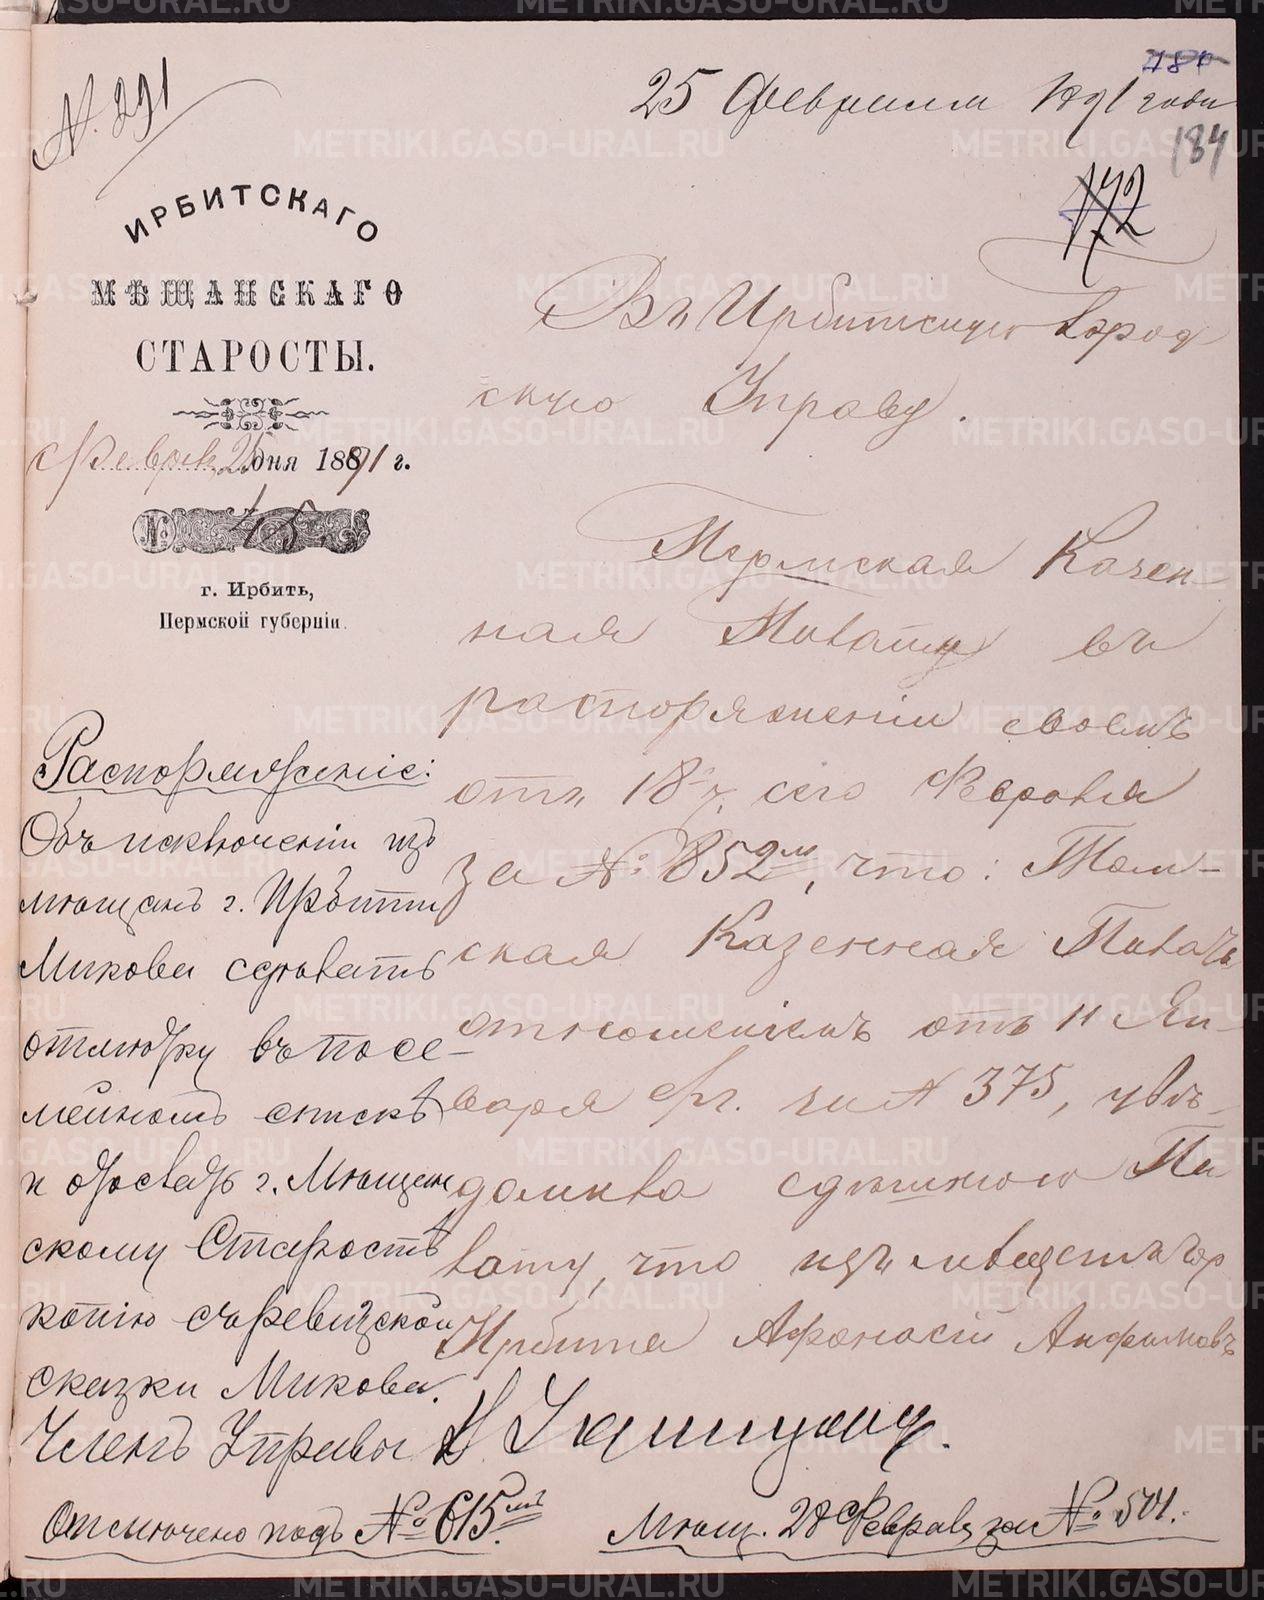 184
25 февраля 1891 года
N. 291
184
172
ИРБИТСКАГО
МѢЩАНСКАГО
СТАРОСТЫ.
Феврал 25 дня 1891 г.
№ 45
г. Ирбить,
Пермской губерніи.
Въ Ирбитскую Город
скую Управу.
Пермская Казен-
ная Палата въ
распоряженіи своемъ
отъ 18 ч. сего Февраля
за №: 852мъ, что: Том-
ская Казенная Палата
отношеніемъ отъ 11 Ян-
варя с/г. за N 375, увѣ-
домила здѣшнюю Па
лату, что изъ мѣщанъ гор
Ирбита Афонасій Анфимовъ
Распоряженіе:
Объ исключеніи изъ
мѣщанъ г. Ирбити
Микова сдѣлать
отмѣтку въ посе-
мейномъ спискѣ
и г. Мѣщан
скому Старостѣ
копію съ ревизской
сказки Микова.
Членъ Управы
Отмѣчено подъ № 615мъ.
Мѣщ. 28 Феврал за № 504.
METRIKI.GASO-URAL.RU